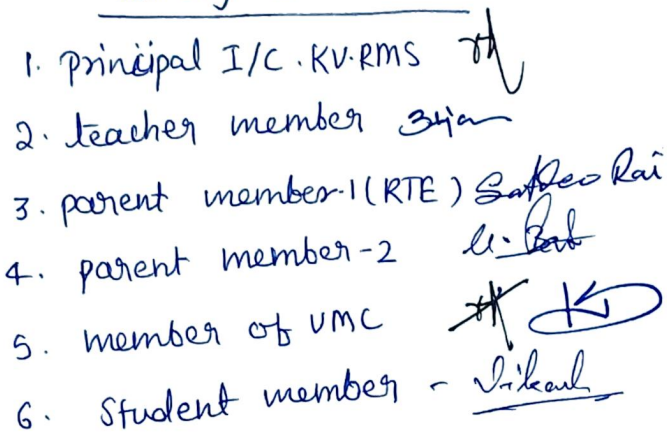 1. principal I/C. KV.RMS
2. teacher member
3. parent member-1 (RTE) Satdeo Rai
4. parent member-2
5. member of VMC
6. Student member -